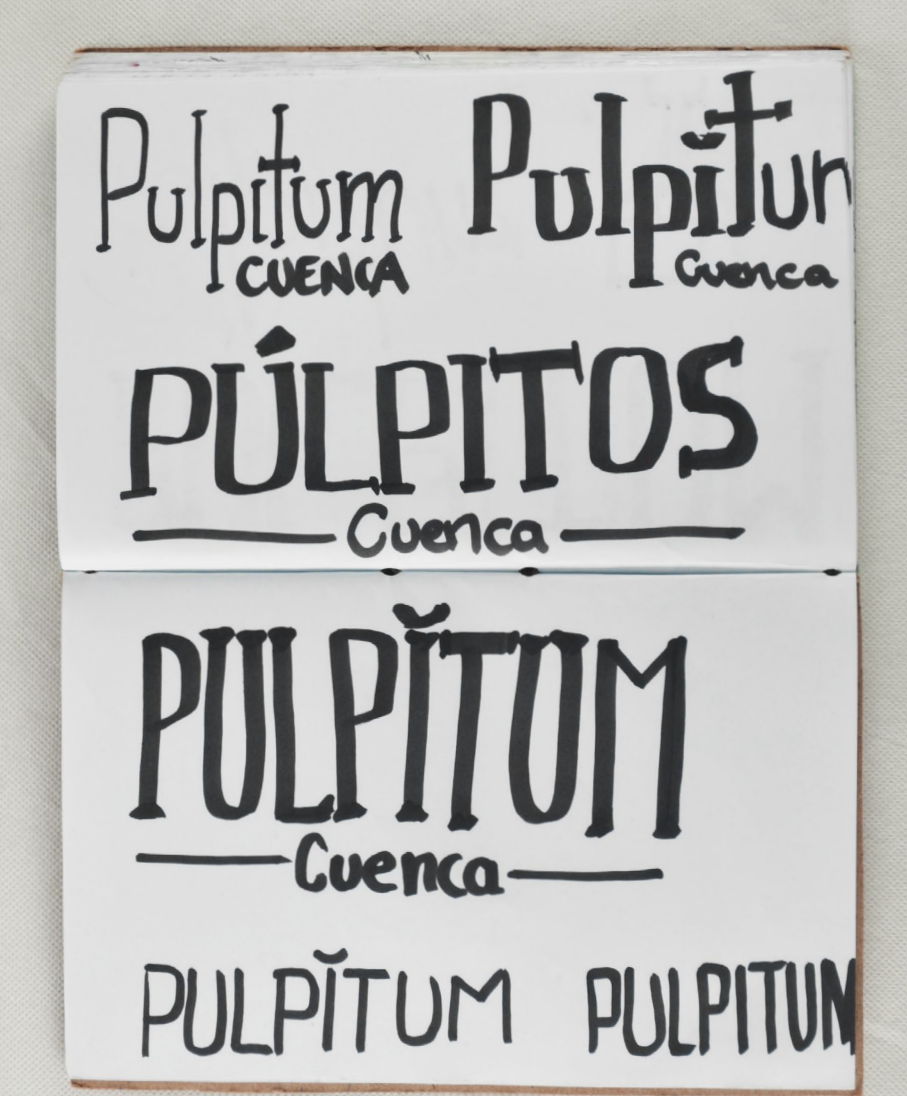 Pulpitum
CUENCA
Pulpĭtum
Cuenca
PÚLPITOS
Cuenca
PULPĬTUM
Cuenca
PULPĬTUM
PULPITUM